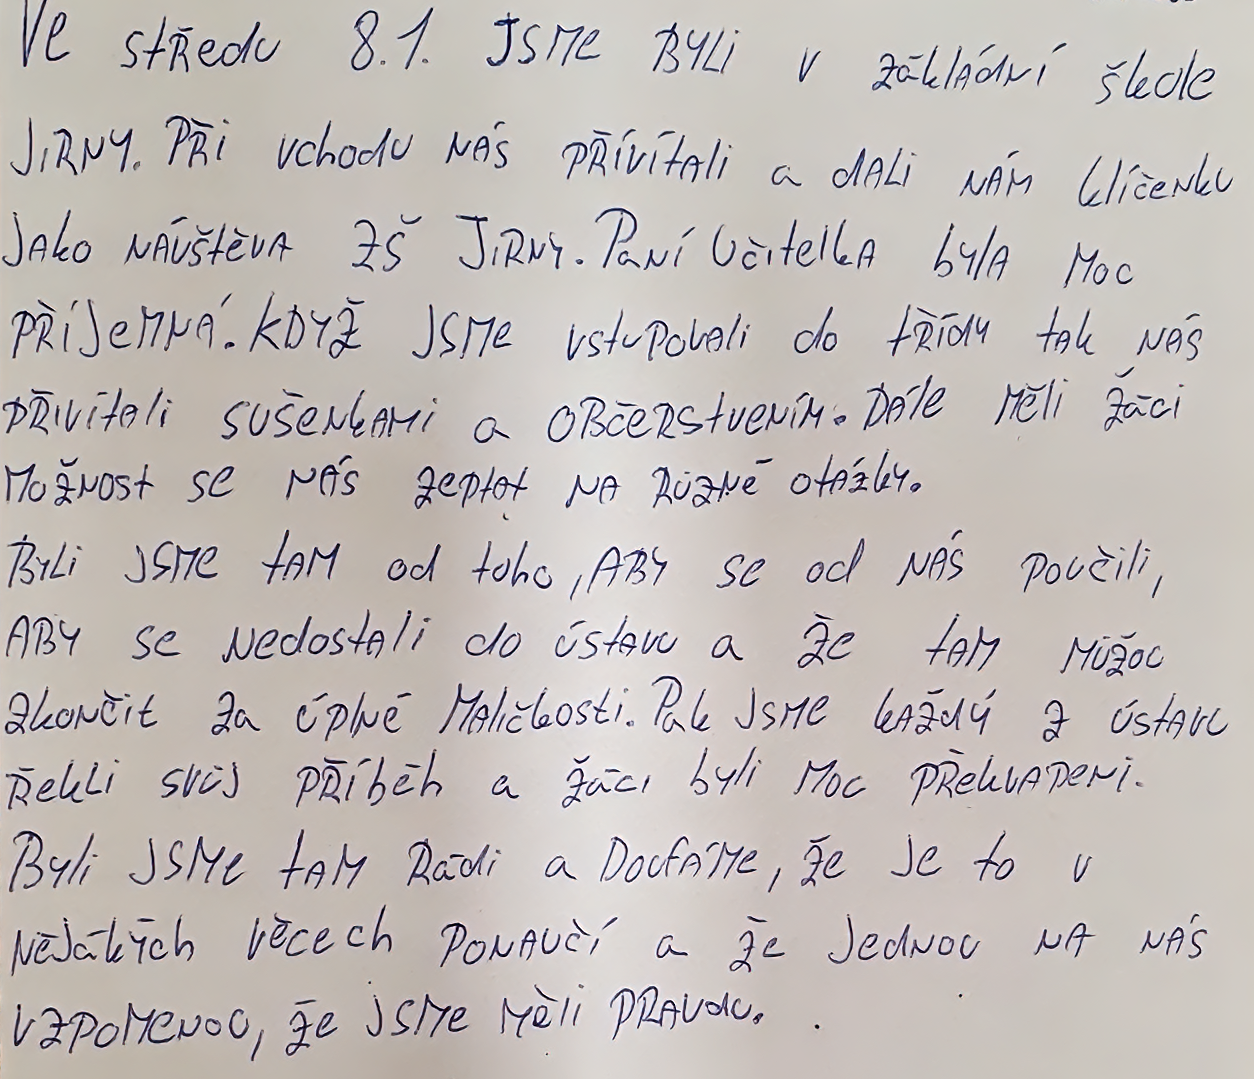 Ve středu 8.1. jsme byli v základní škole
Jirny. Při vchodu nás přívítali a dali nám klíčenku
jako návštěva ZŠ Jirny. Paní učitelka byla moc
příjemná. Když jsme vstupovali do třídy tak nás
přivítali sušenkami a občerstvením. Dále měli žáci
možnost se nás zeptat na různé otázky.
Byli jsme tam od toho, aby se od nás poučili,
aby se nedostali do ústavu a že tam můžou
zkončit za úplné maličkosti. Pak jsme každý z ústavu
řekli svůj příběh a žáci byli moc překvapeni.
Byli jsme tam rádi a doufáme, že je to v
nějákých věcech ponaučí a že jednou na nás
vzpomenou, že jsme měli pravdu.